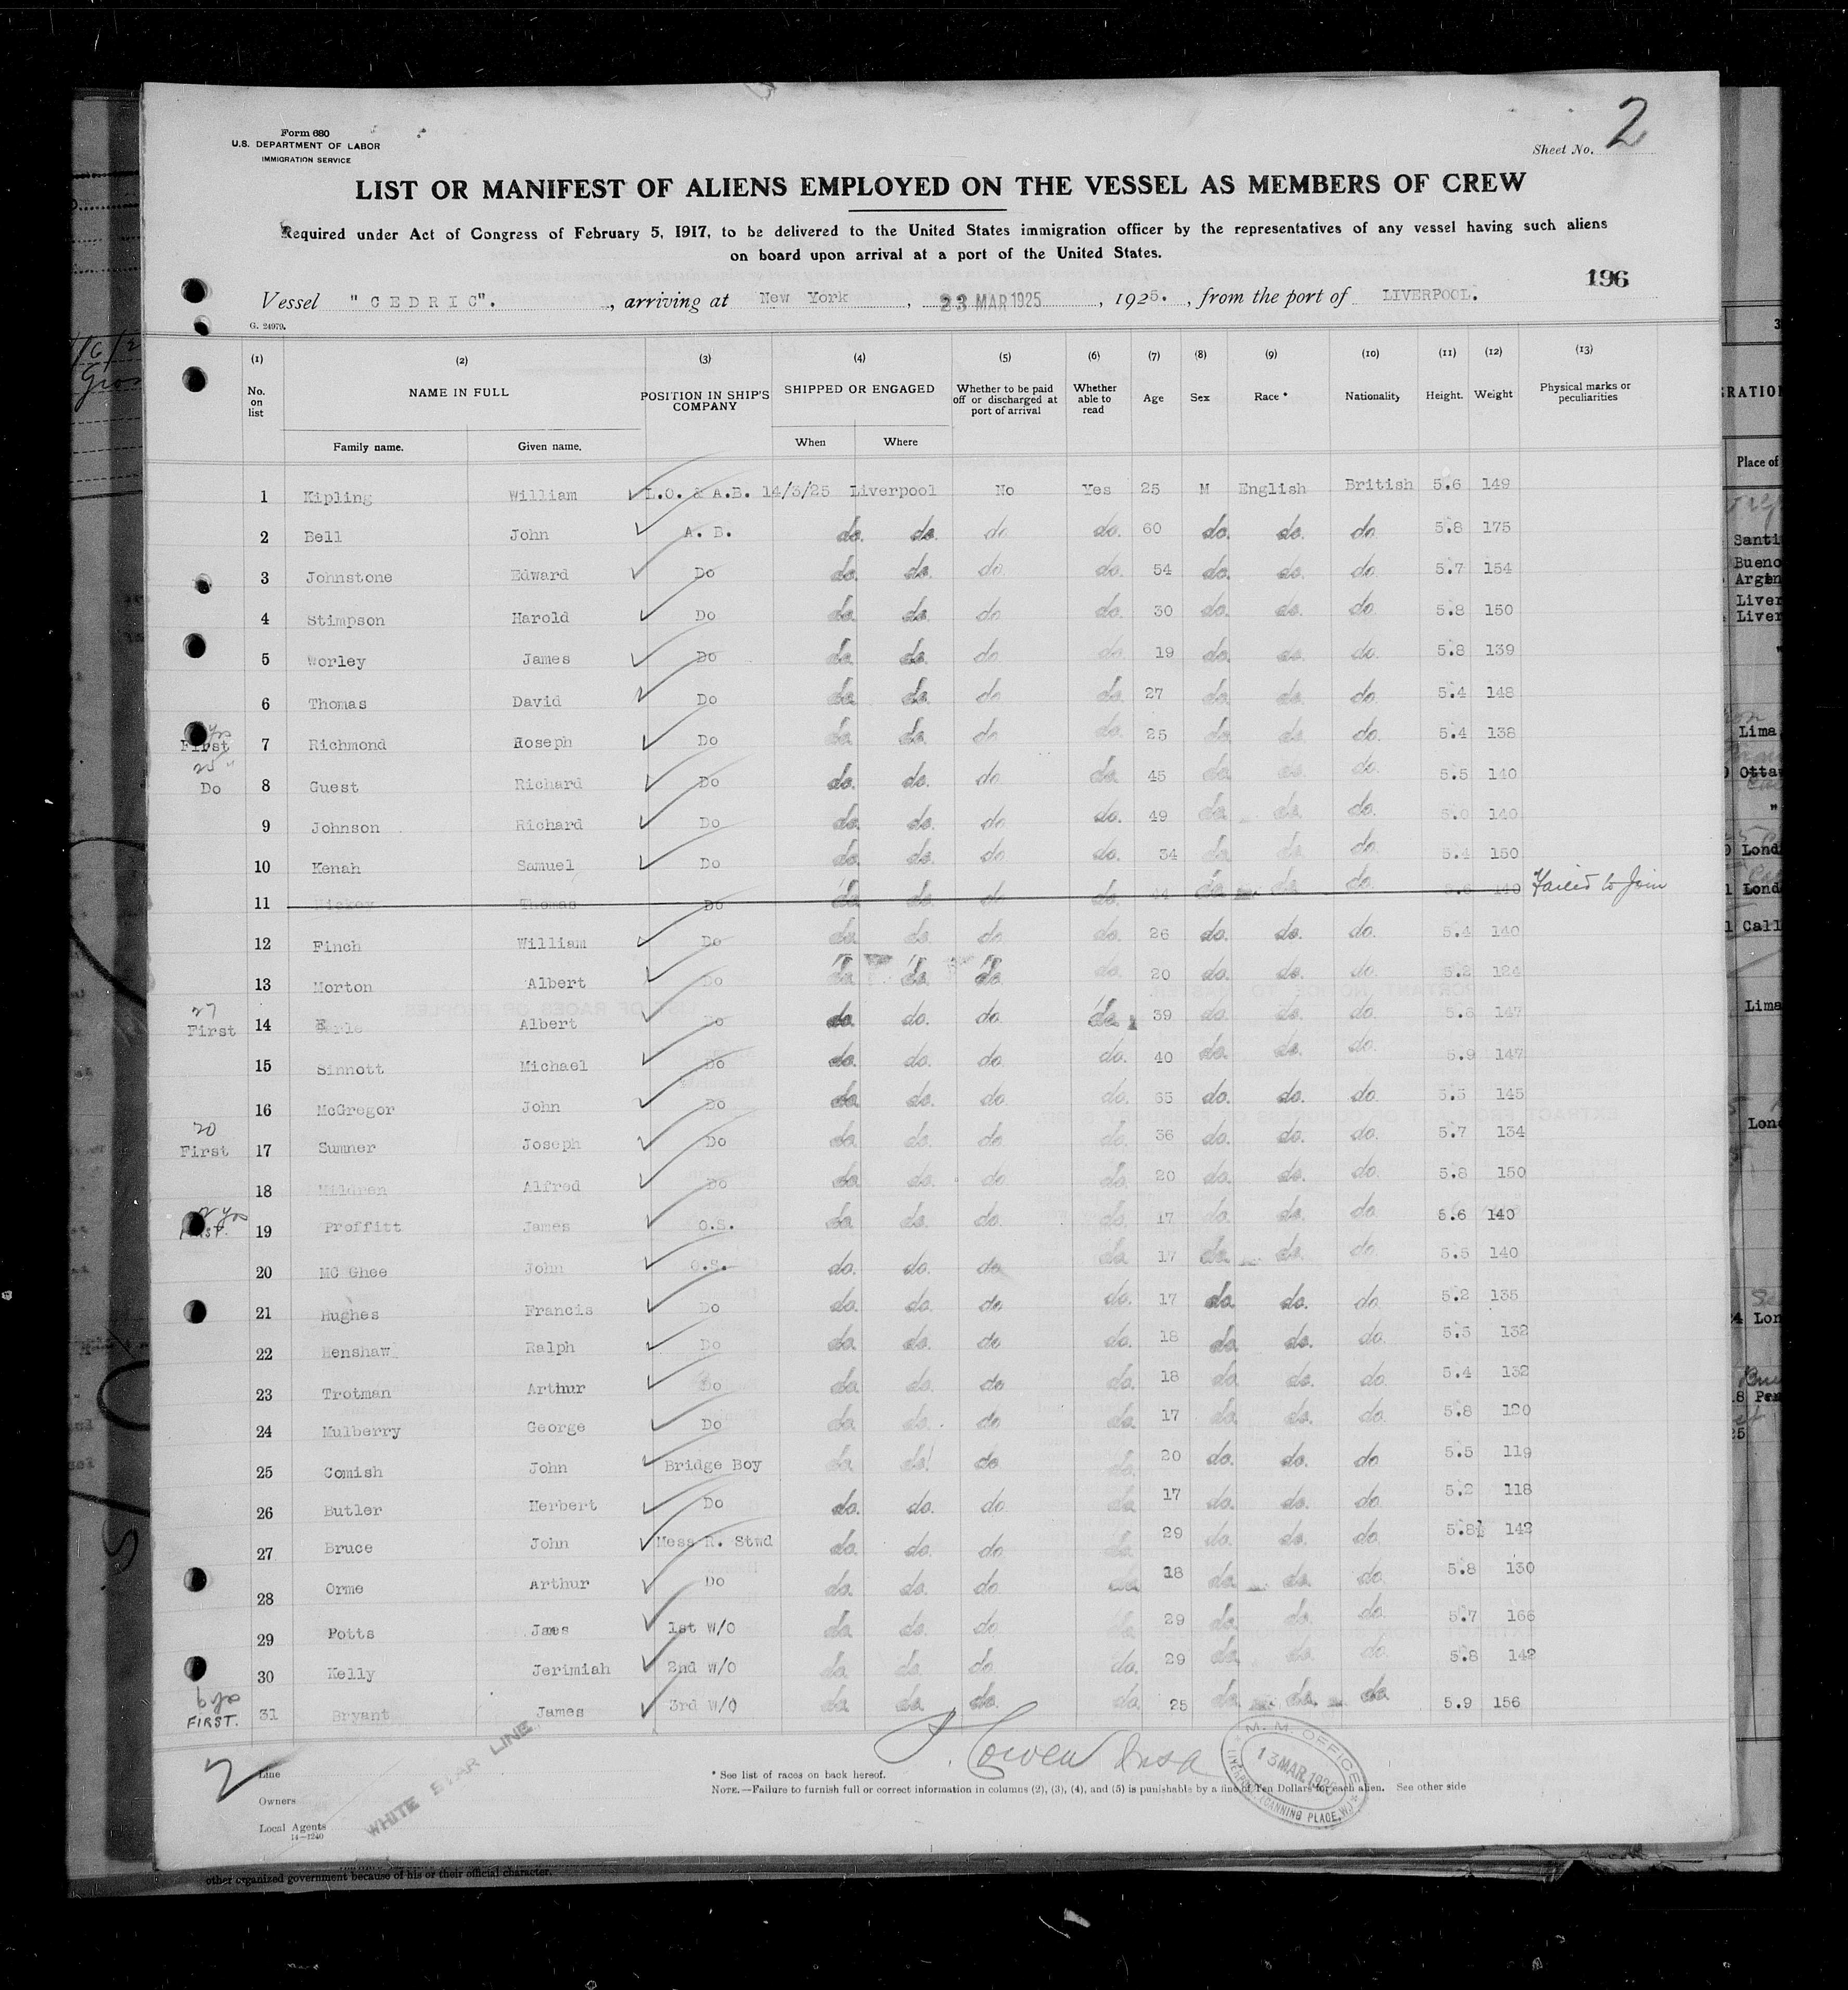 Form 680
U.S. DEPARTMENT OF LABOR
IMMIGRATION SERVICE
Sheet No. 2
LIST OR MANIFEST OF ALIENS EMPLOYED ON THE VESSEL AS MEMBERS OF CREW
Required under Act of Congress of February 5, 1917, to be delivered to the United States immigration officer by the representatives of any vessel having such aliens
on board upon arrival at a port of the United States.
196
Vessel "CEDRIC". , arriving at New York , 23 MAR 1925 , 1925. , from the port of LIVERPOOL.
G. 24979.
(1) (2) (3) (4) (5) (6) (7) (8) (9) (10) (11) (12) (13)
No. on list NAME IN FULL POSITION IN SHIP'S COMPANY SHIPPED OR ENGAGED Whether to be paid off or discharged at port of arrival Whether able to read Age Sex Race * Nationality Height. Weight Physical marks or peculiarities
Family name. Given name. When Where
1 Kipling William L.O. & A.B. 14/3/25 Liverpool No Yes 25 M English British 5.6 149
2 Bell John A. B. do. do. do do. 60 do. do. do 5.8 175
3 Johnstone Edward Do do. do. do do. 54 do. do. do 5.7 154
4 Stimpson Harold Do do. do. do do. 30 do. do. do 5.8 150
5 Worley James Do do. do. do do. 19 do. do. do. 5.8 139
6 Thomas David Do do. do. do do. 27 do. do. do. 5.4 148
First 7 Richmond Joseph Do do. do. do do. 25 do. do. do. 5.4 138
Do 8 Guest Richard Do do. do. do do. 45 do. do. do. 5.5 140
9 Johnson Richard Do do. do. do do. 49 do. do. do. 5.0 140
10 Kenah Samuel Do do. do. do do. 34 do. do. do 5.4 150
11 Hickey Thomas Do do. do. do do. 44 do. do. do. 140 Failed to Join
12 Finch William Do do. do. do do. 26 do. do. do. 5.4 140
13 Morton Albert Do do. do. do. do. 20 do. do. do. 5.2 124
27
First 14 Albert Do do. do. do do. 39 do. do. do. 5.8 147
15 Sinnott Michael Do do. do. do do. 40 do. do. do. 5.9 147
16 McGregor John Do do. do. do do. do. do. do. 5.5 145
20
First 17 Sumner Joseph Do do. do. do do. 36 do. do. do. 5.7 134
18 Mildren Alfred Do do. do. do do. 20 do. do. do 5.8 150
2 yrs
First. 19 Proffitt James O.S. do. do. do do. 17 do. do. do 5.6 140
20 MC Ghee John O.S. do. do. do do. 17 do. do. do 5.5 140
21 Hughes Francis Do do. do. do do. 17 do. do. do 5.2 135
22 Henshaw Ralph Do do. do. do do. 18 do. do. do. 5.5 132
23 Trotman Arthur Do do. do. do do. 18 do. do. do. 5.4 132
24 Mulberry George Do do. do. do do. 17 do. do. do. 5.8 120
25 Comish John Bridge Boy do. do. do do. 20 do. do. do 5.5 119
26 Butler Herbert Do do. do. do do. 17 do. do. do 5.2 118
27 Bruce John Mess R. Stwd do. do. do do. 29 do. do. do. 5.8½ 142
28 Orme Arthur Do do. do. do do. 18 do. do. do. 5.8 130
29 Potts James 1st W/O do. do. do 29 do. do. do. 5.7 166
30 Kelly Jerimiah 2nd W/O do. do. do do. 29 do. do. do. 5.8 142
6 yrs
FIRST. 31 Bryant James 3rd W/O do. do. do. do. 25 do. do. do. 5.9 156
2
Line
Owners
Local Agents
14—1240
WHITE STAR LINE
* See list of races on back hereof.
NOTE.—Failure to furnish full or correct information in columns (2), (3), (4), and (5) is punishable by a fine of Ten Dollars for each alien. See other side
M. M. OFFICE
13 MAR 1925
CANNING PLACE
other organized government because of his or their official character.
Place of
Lima